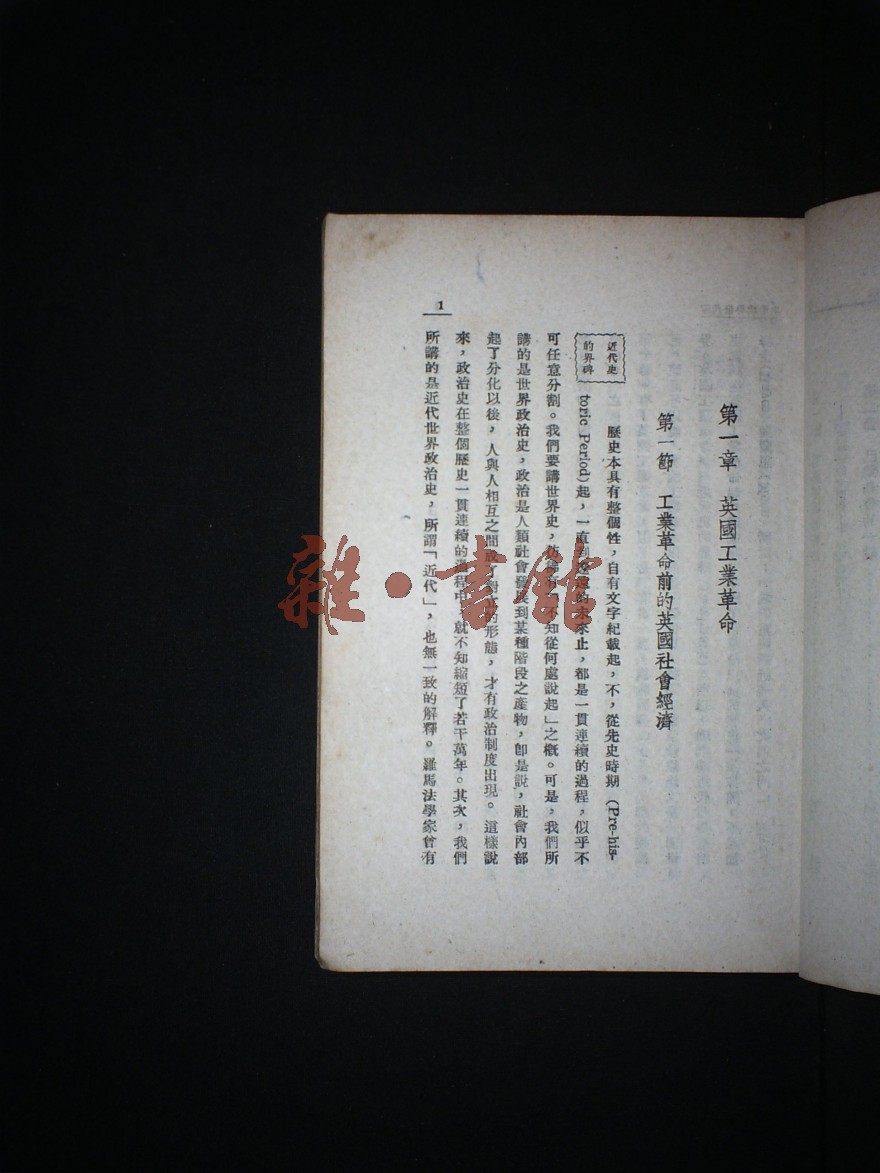 第一章 英國工業革命
第一節 工業革命前的英國社會經濟
近代史
的界碑
歷史本具有整個性，自有文字紀載起，不，從先史時期 (Pre-his-
toric Period) 起，一直到遼遠的未來止，都是一貫連續的過程，似乎不
可任意分割。我們要講世界史，彷彿有「不知從何處說起」之概。可是，我們所
講的是世界政治史，政治是人類社會發展到某種階段之產物，卽是說，社會內部
起了分化以後，人與人相互之間成了對立的形態，才有政治制度出現。這樣說
來，政治史在整個歷史一貫連續的過程中，就不知縮短了若干萬年。其次，我們
所講的是近代世界政治史，所謂「近代」，也無一致的解釋。羅馬法學家曾有
1
雜·書館